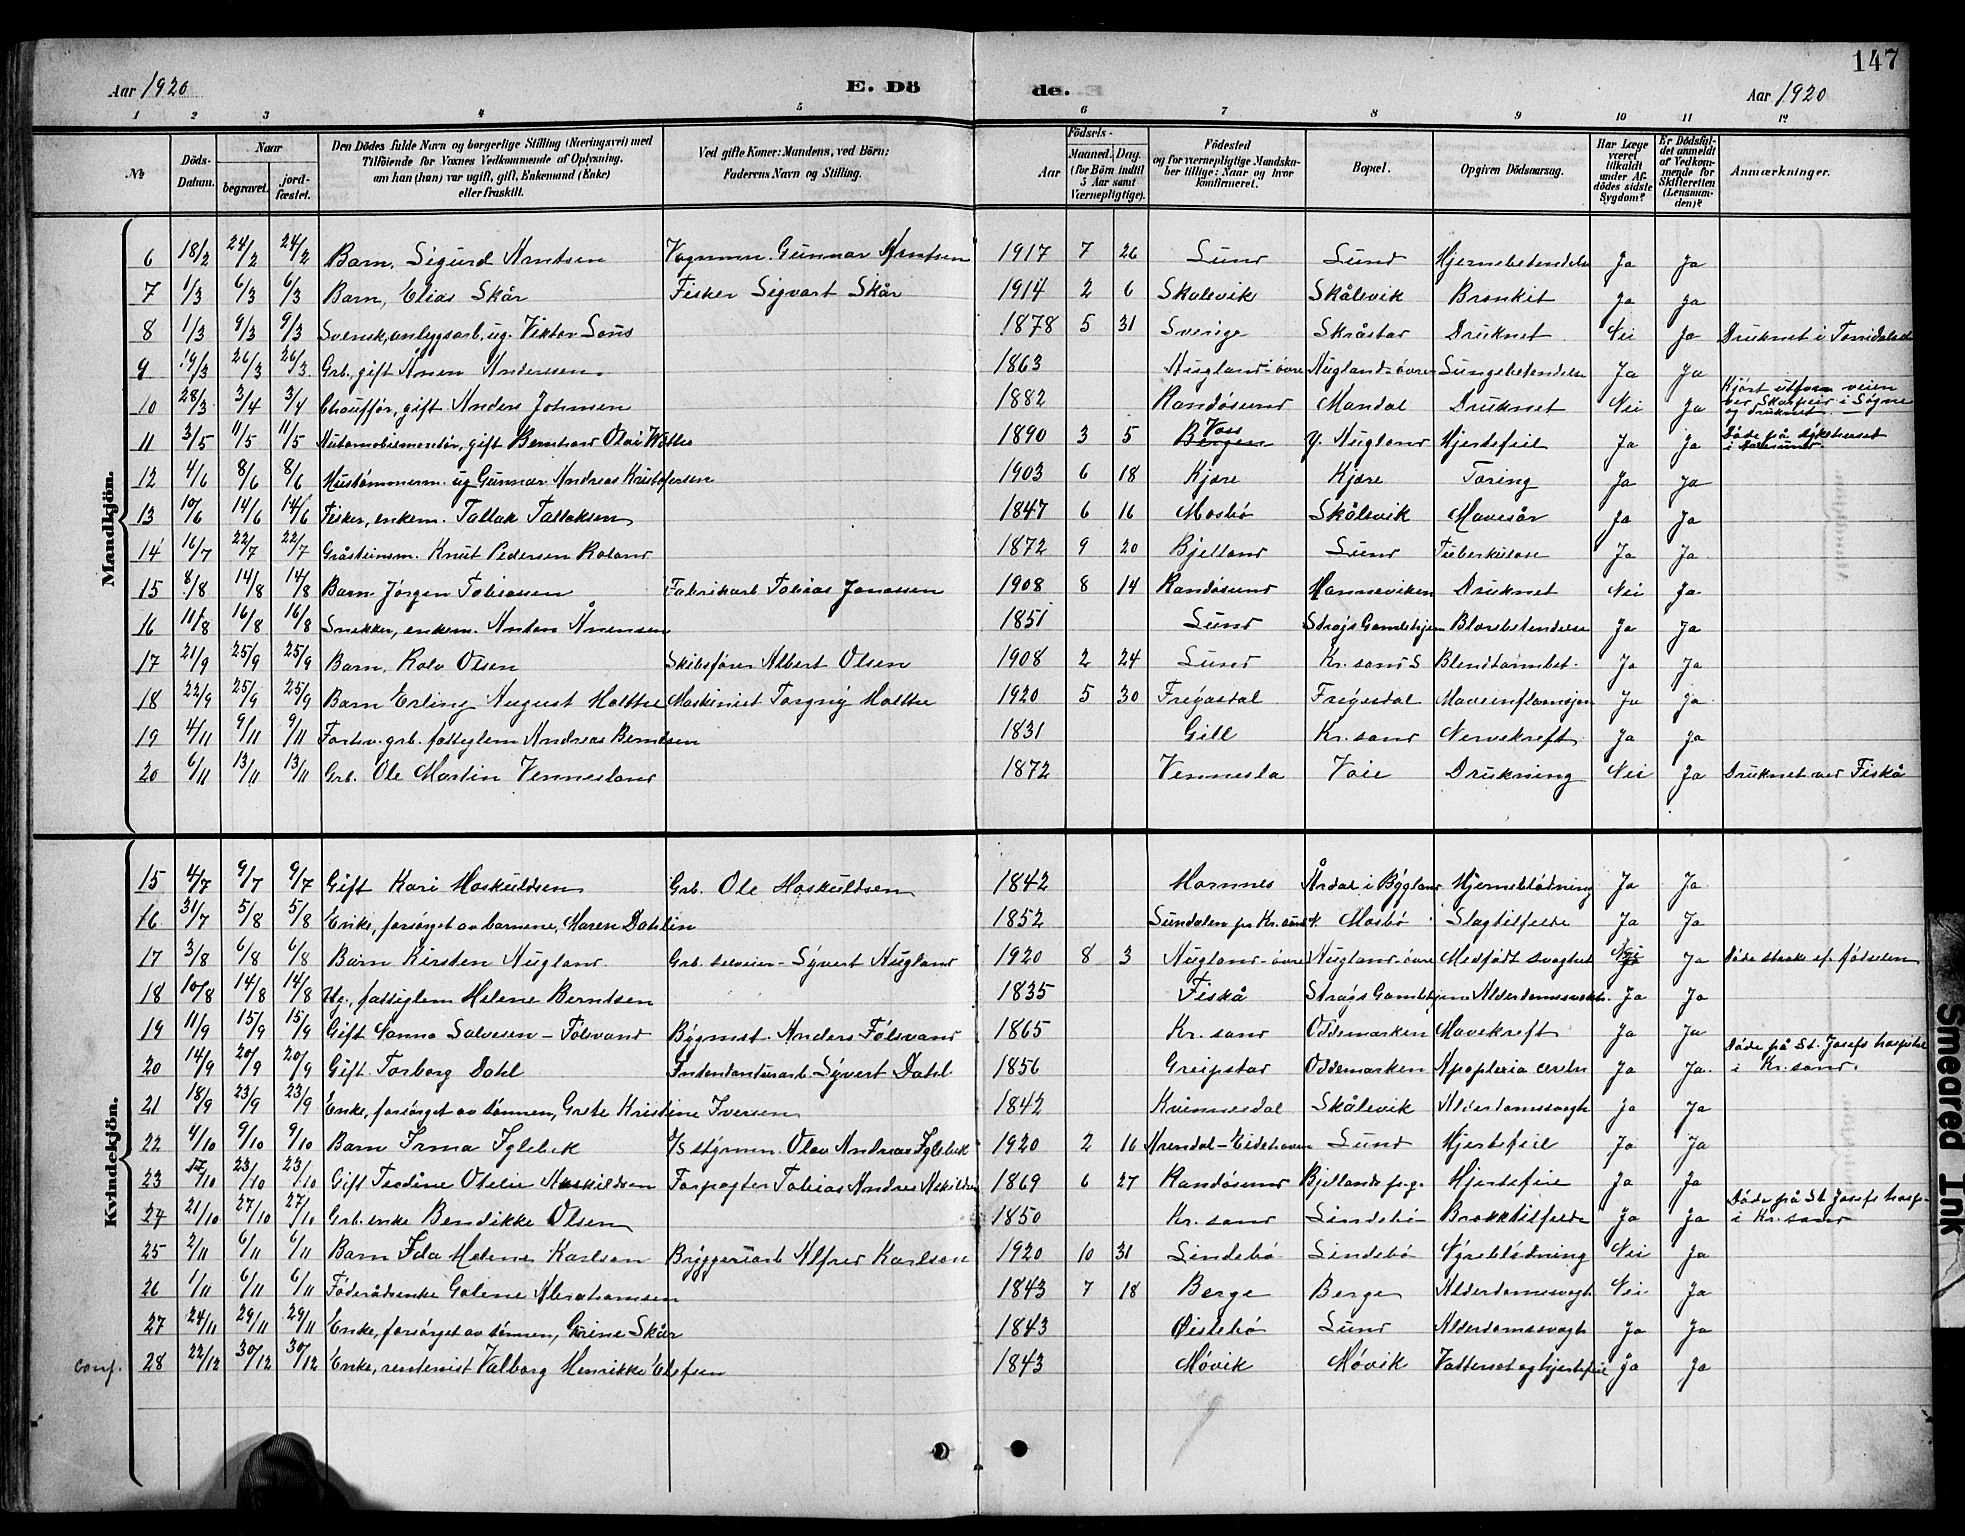 147
Aar 1920 E. Dö de. Aar 1920
1 2 3 4 5 6 7 8 9 10 11 12
№ Döds-Datum. Naar begravet. jord-fæstet. Den Dödes fulde Navn og borgerlige Stilling (Næringsvei) med Tilföiende for Voxnes Vedkommende af Oplysning, om han (hun) var ugift, gift, Enkemand (Enke) eller fraskilt. Ved gifte Koner: Mandens, ved Börn: Faderens Navn og Stilling. Födsels- Aar Maaned. Dag. (for Börn indtil 5 Aar samt Værnepligtige). Födested og for værnepligtige Mandskaber tillige: Naar og hvor konfirmeret. Bopæl. Opgiven Dödsaarsag. Har Læge været tilkaldt under Afdödes sidste Sygdom? Er Dödsfaldet anmeldt af Vedkommende for Skifteretten (Lensmanden)? Anmærkninger.
Mandkjön.
6 18/2 24/2 24/2 Barn, Sigurd Arntsen Vognmn. Gunnar Arntsen 1917 7 26 Lund Lund Hjernebetendelse Ja Ja
7 1/3 6/3 6/3 Barn, Elias Skår Fisker Sigvart Skår 1914 2 6 Skålevik Skålevik Bronkit Ja Ja
8 1/3 9/3 9/3 Svensk, anlegsarb, ug. Viktor 1878 5 31 Sverige Skråstad Druknet Nei Ja Druknet i Torridalselv
9 19/3 26/3 26/3 Grb., gift Ånen Andersen 1863 Augland-øvre Augland-øvre Lungebetendelse Ja Ja
10 28/3 3/4 3/4 Chauffør, gift Anders Johnsen 1882 Randøsund Mandal Druknet Nei Ja Kjørt utfor veien ved i Søgne og druknet
11 3/5 11/5 11/5 Automobilmontør, gift Bernhard Olai 1890 3 5 Bergen Voss y. Augland Hjertefeil Ja Ja Døde på sykehuset i
12 4/6 8/6 8/6 Hustømmerm. ug Gunnar Andreas Kristofersen 1903 6 18 Kjære Kjære Tæring Ja Ja
13 10/6 14/6 14/6 Fisker, enkem. Tallak Tallaksen 1847 6 16 Mosbø Skålevik Mavesår Ja Ja
14 16/7 22/7 22/7 Gråsteinsm. Knut Pedersen Roland 1872 9 20 Bjelland Lund Tuberkulose Ja Ja
15 8/8 14/8 14/8 Barn Jørgen Tobiassen Fabrikarb Tobias Jonassen 1908 8 14 Randøsund Hanneviken Druknet Nei Ja
16 11/8 16/8 16/8 Snekker, enkem. Anton Ånensen 1851 Lund Strays Gamlehjem Blærebetendelse Ja Ja
17 21/9 25/9 25/9 Barn, Rolv Olsen Skibsfører Albert Olsen 1908 2 24 Lund Kr.sand S Blindtarmbet. Ja Ja
18 22/9 25/9 25/9 Barn Erling August Holthe Maskinist Torgny Holthe 1920 5 30 Fregasdal Fregasdal Maveinflamasjon Ja Ja
19 4/11 9/11 9/11 Forhv. grb. fattiglem Andreas Berntsen 1831 Gill Kr.sand Nervekreft Ja Ja
20 6/11 13/11 13/11 Grb. Ole Martin Vennesland 1872 Vennesla Voie Drukning Nei Ja Druknet ved Fiskå
Kvindekjön.
15 4/7 9/7 9/7 Gift Kari Hoskuldsen Grb. Ole Hoskuldsen 1842 Hornnes Årdal i Bygland Hjerneblødning Ja Ja
16 31/7 5/8 5/8 Enke, forsørget av barnene, Maren Dahlin 1852 Sundalen pr Kr.sund N. Mosbø Slagtilfelde Ja Ja
17 3/8 6/8 6/8 Barn Kirsten Augland Grb. selveier - Syvert Augland 1920 8 3 Augland-øvre Augland-øvre Medfødt svaghet Nei Ja Døde straks ef. fødselen
18 10/8 14/8 14/8 Ug., fattiglem Helene Berntsen 1835 Fiskå Strays Gamlehjem Alderdomssvakh. Ja Ja
19 11/9 15/9 15/9 Gift Nanna Salvesen - Følsvand Bygmst. Anders Følsvand 1865 Kr.sand Oddemarken Mavekreft Ja Ja
20 14/9 20/9 20/9 Gift Torborg Dahl Intendanturarb. Syvert Dahl 1856 Greipstad Oddemarken Apoplexia cerebr Ja Ja Døde på St. Josefs hospital i Kr.sand.
21 18/9 23/9 23/9 Enke, forsørget av sønnen, Grete Kristine Iversen 1842 Kvinnesdal Skålevik Alderdomssvagh Ja Ja
22 4/10 9/10 9/10 Barn Irma Iglebek styrmn. Olav Andreas Iglebek 1920 2 16 Arendal-Eidehaven Lund Hjertefeil Ja Ja
23 17/10 23/10 23/10 Gift Teodine Otelie Askildsen Forpagter Tobias Andres Askildsen 1869 6 27 Randøsund Bjellands prg. Hjertefeil Ja Ja
24 21/10 27/10 27/10 Grb.enke Bendikke Olsen 1850 Kr.sand Lindebø Brokktilfelde Ja Ja Døde på St Josefs hosp. i Kr.sand
25 2/11 6/11 6/11 Barn Ida Helene Karlson Bryggeriarb Alfred Karlson 1920 10 31 Lindebø Lindebø Nyreblødning Nei Ja
26 1/11 6/11 6/11 Føderådsenke Golene Abrahamsen 1843 7 18 Berge Berge Alderdomssvagh Nei Ja
27 24/11 29/11 29/11 Enke, forsørget av sønnen, Skår 1843 Øistebø Lund Alderdomssvagh Ja Ja
conf. 28 22/12 30/12 30/12 Enke, rentenist Valborg Henrikke Olefsen 1843 Møvik Møvik Vattersot og hjertefeil Ja Ja
Smeared Ink